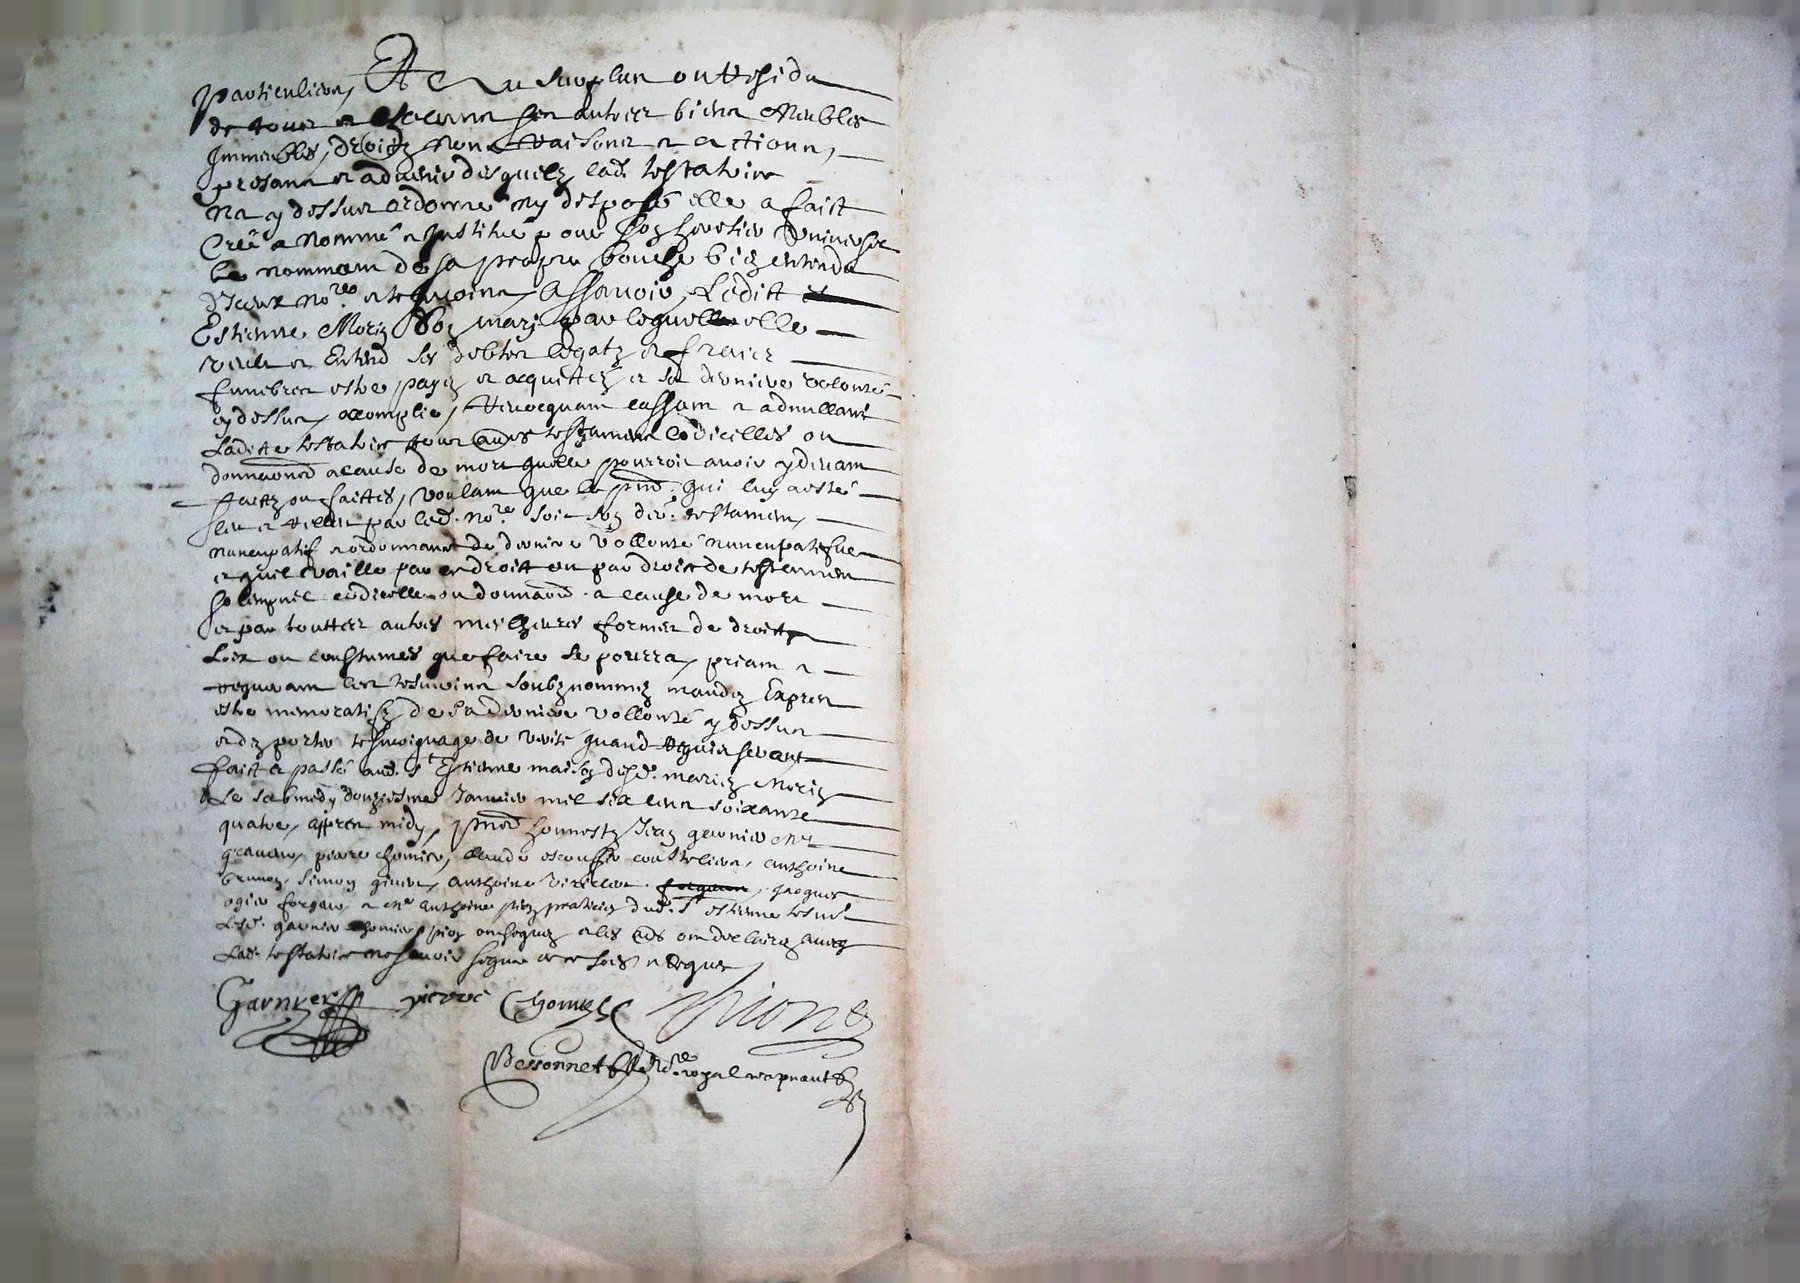 particuliers, Et au surplus ou Residu
de tous et chacuns ses autres biens Meubles
Immeubles, droictz noms Raisons et actions,
presans et advenir desquelz lad. testatrice
na cy dessus ordonné ny desposé elle a faict
Créé et nommé et Institué pour son heretier universel
le nommant de sa propre bouche bien entendu
d'Iceux no.re et tesmoins, assavoir, Ledict
Estienne Morin son mary par lequel elle
veult et Entend ses debtes legatz et fraicz
funebres estre payez et acquittez et sa derniere volonté
cy dessus, accomplie, Revocquant cassant et adnullant
Ladicte testatrice tous autres testamens codicilles ou
donnaons a cause de mort quelle pourroit avoir cy devant
faictz ou faictes, voulant que le pnt. qui luy a esté
leu et releu par led. no.re soit son der. testament,
nuncupatif et ordonnance de derniere vollonté nuncupatifve
et quil vaille par en droict ou par droict de testament
solempnel codicille ou donnaon a cause de mort
et par touttes autres meilheures formes de droictz
Loix ou coustumes que faire se pourra, priant et
requerant les tesmoins soubznommez mandez Expres
estre memoratifz de sa derniere vollonté cy dessus
et dy porter tesmoignage de verité quand Requis seront
faict et passé aud. St Estienne maison desd. mariez Morin
Le sabmedy douziesme Janvier mil six cens soixante
quatre, apres midy, pnts honnestz Jean garnier me
graveur, pierre chomier, claude escoffier coustelier, anthoine
brunon, simon, anthoine, jacques
ogier forgeur, et me anthoine pion praticien dud. St estienne tesm.
Lesd. garnier chomier pion ont signez et les autres ont declairez avec
Lad. testatrice ne scavoir signer de ce faire enquis
Garnier pierre Chomier Pion
Bessonnet No.re royal recepvant